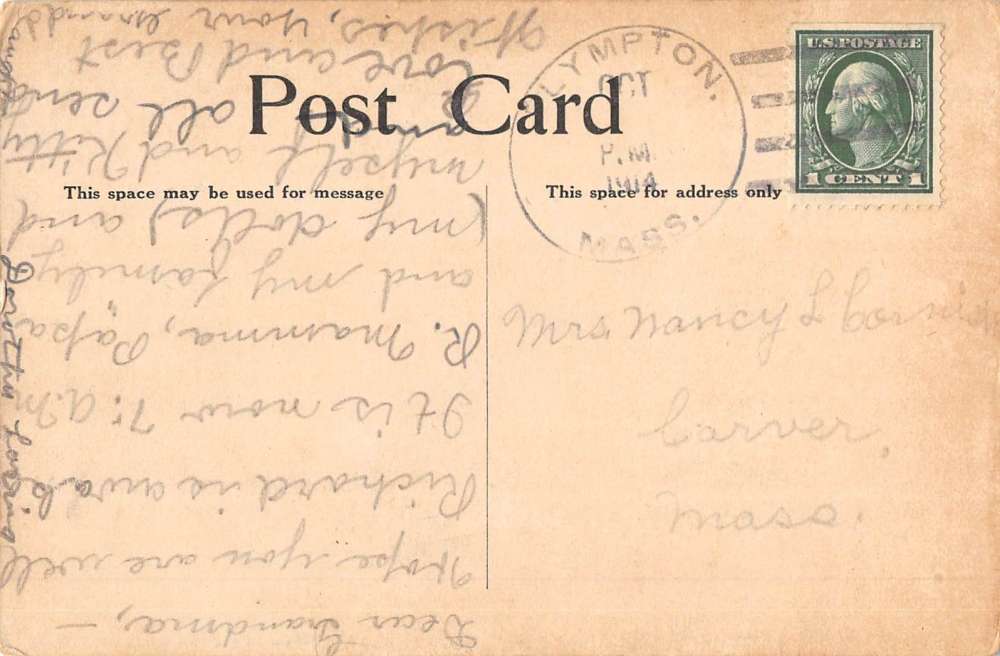 Post Card
This space may be used for message
This space for address only
PLYMPTON.
OCT
P.M.
1914
MASS.
U.S. POSTAGE
1 CENT 1
Mrs Nancy L Cornish
Carver,
Mass.
Dear Grandma,—
Hope you are well
Richard is awake
It is now 7: a.m
R. Mamma, Papa
and my family
(my dolls) and
myself and Kitty
all send
Love and Best
Wishes, your grand
daughter
Dorothy Loring